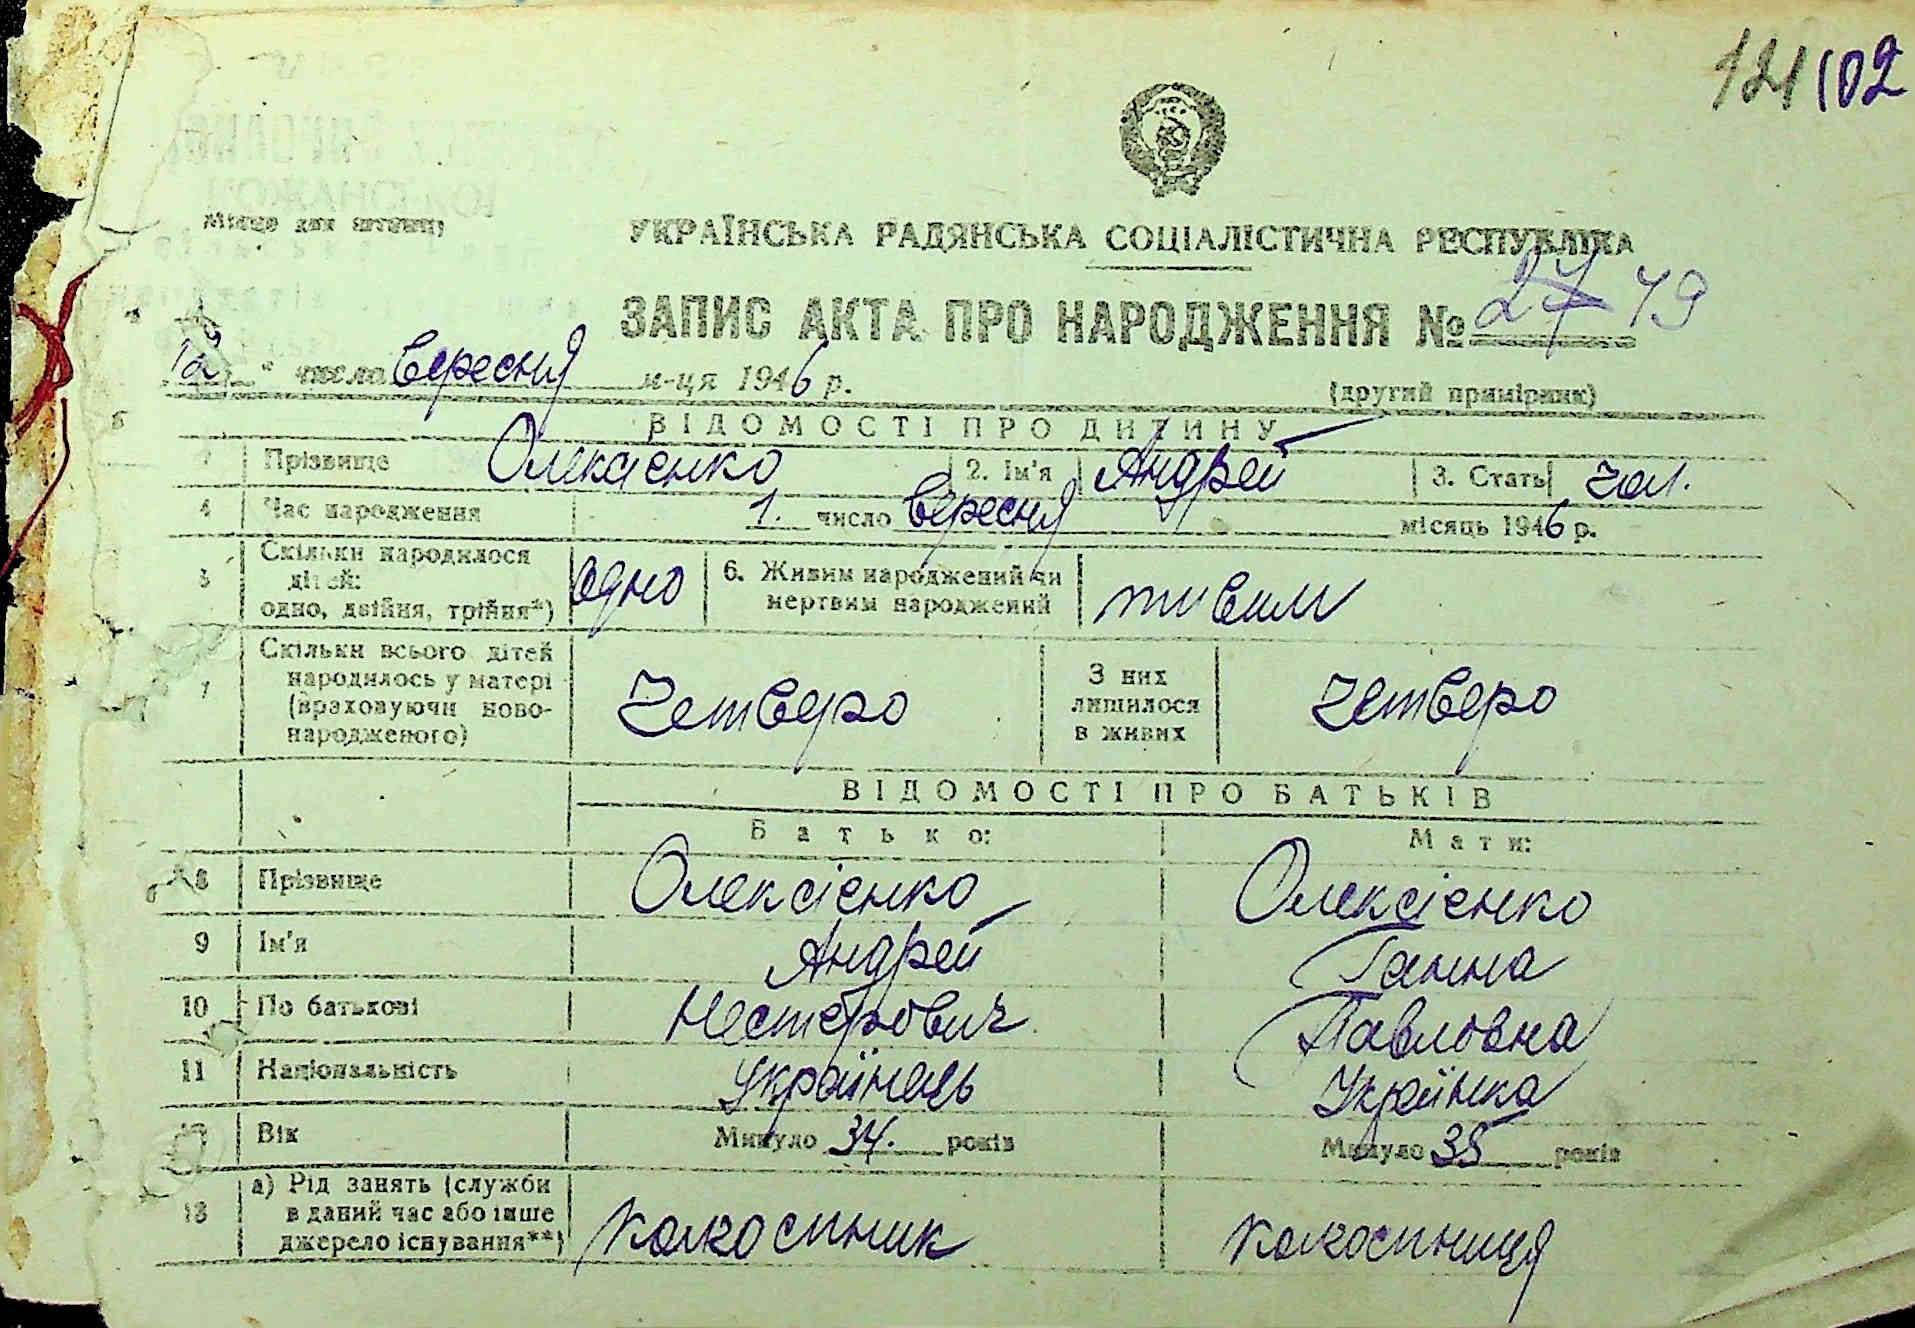 121 102
Місце для штампу
УКРАЇНСЬКА РАДЯНСЬКА СОЦІАЛІСТИЧНА РЕСПУБЛІКА
ЗАПИС АКТА ПРО НАРОДЖЕННЯ № 27 79
12 " число вересня м-ця 1946 р.
(другий примірник)
ВІДОМОСТІ ПРО ДИТИНУ
Прізвище Олексієнко 2. Ім'я Андрей 3. Стать чол.
4 Час народження 1. число вересня місяць 1946 р.
5 Скільки народилося дітей: одно, двійня, трійня*) одно 6. Живим народжений чи мертвим народжений живим
7 Скільки всього дітей народилось у матері (враховуючи новонародженого) четверо З них лишилося в живих четверо
ВІДОМОСТІ ПРО БАТЬКІВ
Батько: Мати:
8 Прізвище Олексієнко Олексієнко
9 Ім'я Андрей Ганна
10 По батькові Нестерович Павловна
11 Національність Українець Українка
12 Вік Минуло 34. років Минуло 35 років
13 а) Рід занять (служби в даний час або інше джерело існування**) колхоспник колхоспниця